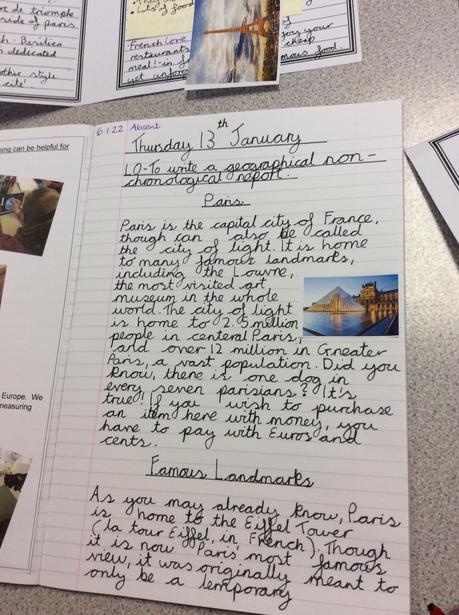 rc de triomphe
side of paris
h. Basilica
n dedicated
othic style
cité'.
• Lots of food
French love
restaurants
meal!-in f
yet unfor
for your
cheap
mous food.
ning can be helpful for
Europe. We
measuring
6 1 22 Absent
Thursday 13th January
LO-To write a geographical non-
chronological report.
Paris
Paris is the capital city of France,
though can also be called
the city of light. It is home
to many famous landmarks,
including the Louvre,
the most visited art
museum in the whole
world. The city of light
is home to 2.5 million
people in centeral Paris,
and over 12 million in Greater
Paris, a vast population. Did you
know, there is one dog in
every seven parisians? It's
true! If you wish to purchase
an item here with money, you
have to pay with Euros and
cents.
Famous Landmarks
As you may already know, Paris
is home to the Eiffel Tower
(la tour Eiffel, in French). Though
it is now Paris' most famous
view, it was originally meant to
only be a temporary